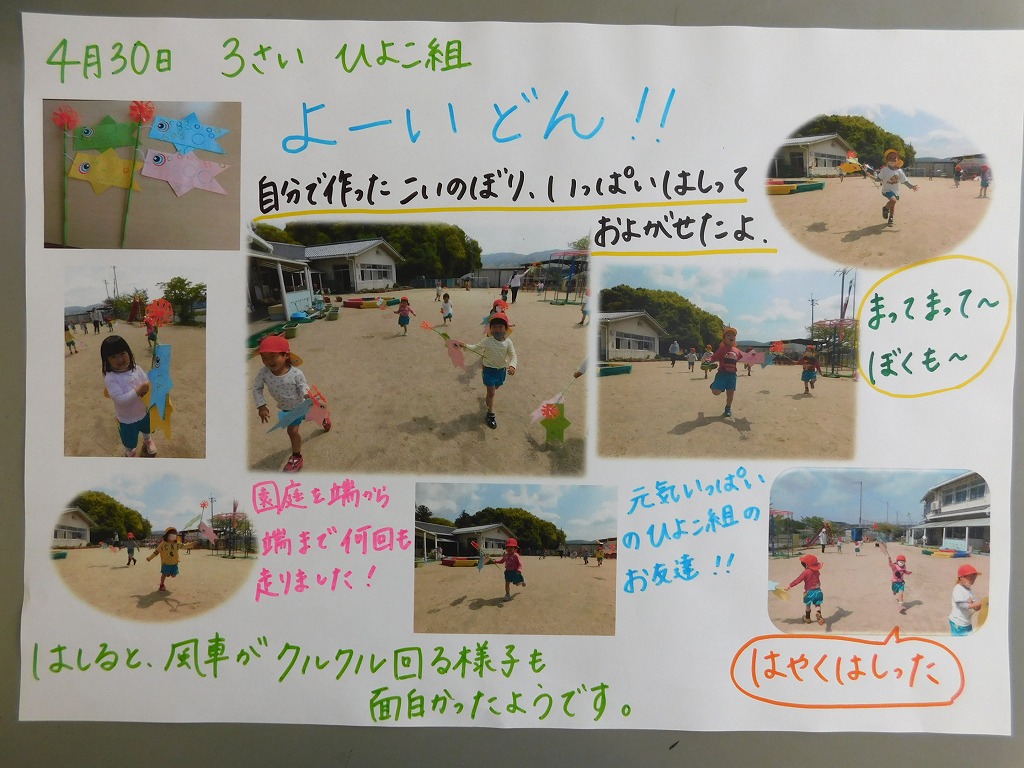 4月30日 3さい ひよこ組
よーいどん!!
自分で作った こいのぼり、いっぱいはしって
およがせたよ.
まってまって〜
ぼくも〜
園庭を端から
端まで何回も
走りました!
元気いっぱい
のひよこ組の
お友達!!
はやくはしった
はしると、風車がクルクル回る様子も
面白かったようです。